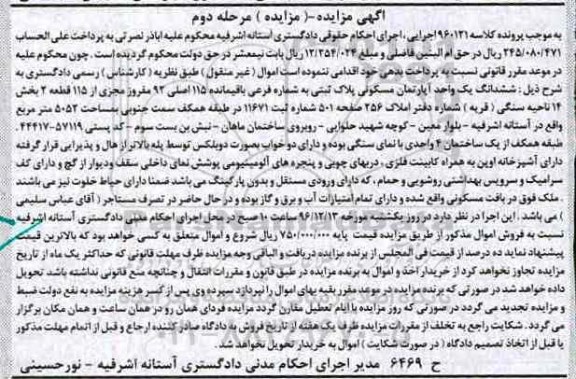 آگهی مزایده-( مزایده ) مرحله دوم
به موجب پرونده کلاسه ۹۶۰۱۳۱اجرایی ،اجرای احکام حقوقی دادگستری آستانه اشرفیه محکوم علیه اباذر نصرتی به پرداخت علی الحساب
۲۴۵/۰۸۰/۴۷۱ ریال در حق ام البنین فاضلی و مبلغ ۱۲/۲۵۴/۰۲۴ ریال بابت نیمعشر در حق دولت محکوم گردیده است . چون محکوم علیه
در موعد مقرر قانونی نسبت به پرداخت بدهی خود اقدامی ننموده است اموال ( غیر منقول ) طبق نظریه ( کارشناس ) رسمی دادگستری به
شرح ذیل : ششدانگ یک واحد آپارتمان مسکونی پلاک ثبتی به شماره فرعی باقیمانده ۱۱۵ اصلی ۹۲ مفروز مجزی از ۱۱۵ قطعه ۲ بخش
۱۴ ناحیه سنگی ( قریه ) شماره دفتر املاک ۲۵۶ صفحه ۵۰۱ شماره ثبت ۱۱۶۷۱ در طبقه همکف سمت جنوبی بمساحت ۵۰۵۲ متر مربع
واقع در آستانه اشرفیه - بلوار معین - کوچه شهید حلوایی - روبروی ساختمان ماهان - نبش بن بست سوم - کد پستی ۵۷۱۱۹-۴۴۴۱۷
طبقه همکف از یک ساختمان ۴ واحدی با نمای سنگی بوده و دارای دو خواب بصورت دوبلکس توسط پله بالاتر از هال و پذیرایی قرار گرفته
دارای آشپزخانه اوپن به همراه کابینت فلزی ، دربهای چوبی و پنجره های آلومینیومی پوشش نمای داخلی سقف ودیوار از گچ و دارای کف
سرامیک و سرویس بهداشتی روشویی و حمام ، که دارای ورودی مستقل و بدون پارکینگ می باشد ضمنا دارای حیاط خلوت نیز می باشند
. ملک فوق در بافت مسکونی واقع شده و دارای تمام امتیازات آب و برق و گاز بوده و در حال حاضر در تصرف مستاجر ( آقای عباس سلیمی
) می باشد . این اجرا در نظر دارد در روز یکشنبه مورخه ۹۶/۱۲/۱۳ ساعت ۱۰ صبح در محل اجرای احکام مدنی دادگستری آستانه اشرفیه
نسبت به فروش اموال مذکور از طریق مزایده قیمت پایه ۷۵۰/۰۰۰/۰۰۰ ریال شروع و اموال متعلق به کسی خواهد بود که بالاترین قیمت
پیشنهاد نماید ده درصد از قیمت فی المجلس از برنده مزایده دریافت و الباقی وجه مزایده ظرف مهلت قانونی که حداکثر یک ماه از تاریخ
مزایده تجاوز نخواهد کرد از خریدار اخذ و اموال به برنده مزایده در طبق قانون و مقررات انتقال و چنانچه منع قانونی نداشته باشد تحویل
داده خواهد شد در صورتی که برنده مزایده در موعد مقرر بقیه بهای اموال را نپردازد سپرده وی پس از کسر هزینه مزایده به نفع دولت ضبط
و مزایده تجدید می گردد در صورتی که روز مزایده با ایام تعطیل مقارن گردد مزایده فردای همان روز در همان ساعت و همان مکان برگزار
می گردد . شکایت راجع به تخلف از مقررات مزایده ظرف یک هفته از تاریخ فروش به دادگاه صادر کننده ارجاع و قبل از اتمام مهلت مذکور
یا قبل از اتخاذ تصمیم دادگاه ( در صورت شکایت ) اموال به خریدار تحویل نخواهد شد.
ح ۶۴۶۹ مدیر اجرای احکام مدنی دادگستری آستانه اشرفیه - نورحسینی